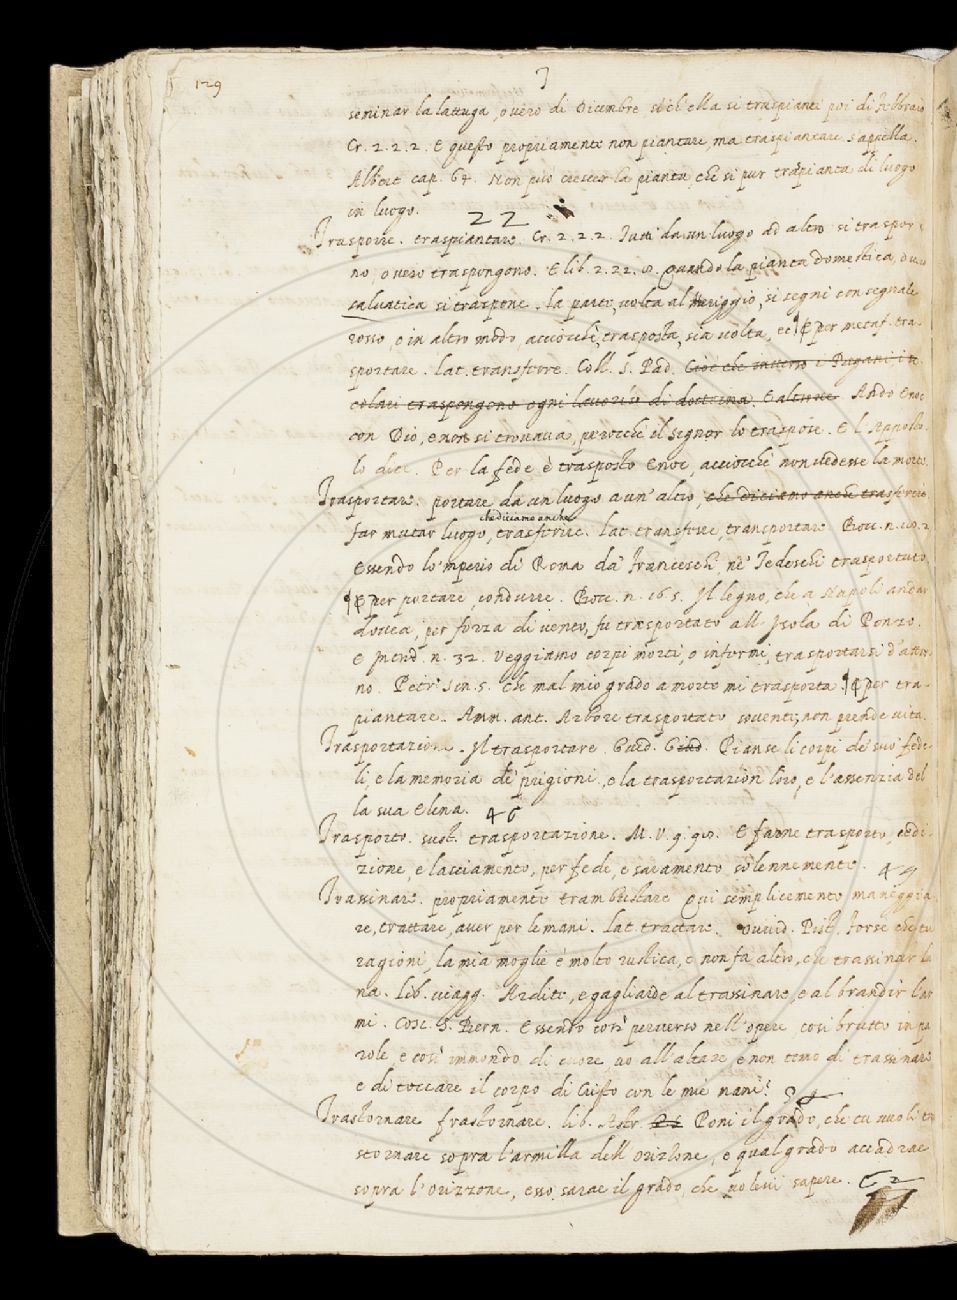 129
T
seminar la lattuga, overo di Dicembre, sì ch'ella si traspianti poi di Febbraio
Cr. 2. 2. 2. E questo propriamente non piantare, ma traspiantare s'appella.
Albert. cap. 64. Non può crescer la pianta che si pur trapianta di luogo
in luogo.
22
Trasporre. traspiantare. Cr. 2. 2. 2. Tutti da un luogo ad altro si traspor,
no, overo traspongono. E lib. 2. 22. Quando la pianta domestica, o ver
salvatica si traspone. la parte, volta al meriggio, si segni con segnale
rosso, o in altro modo, acciocchè, trasposta, sia volta, ec. ¶ per metaf. tra-
sportare. lat. transferre. Coll. S. Pad. Cioè che
traspongono ogni di dottrina. E altrove. Andò Enoc
con Dio, e non si trovava, perocchè il Signor lo traspose. E l'Apposto-
lo dice. Per la fede è trasposto Enoc, acciocchè non vedesse la morte.
Trasportare. portare da un luogo a un' altro, che diciamo anche trasferire
che diciamo anche
far mutar luogo, trasferire. lat. transferre, transportare. Bocc. n.
Essendo lo'mperio di Roma da' Franceschi ne' Tedeschi trasportato.
¶ per portare, condurre. Bocc. n. 16. 5. Il legno, che a Napoli andar
dovea, per forza di vento, fu trasportato all' Isola di Ponzo.
E Introd. n. 32. Veggiamo corpi morti, o infermi, trasportarsi d'attor-
no. Petr. Son. 5. Che mal mio grado a morte mi trasporta. ¶ per tra-
piantare. Amm. ant. Arbore trasportato sovente, non prende vita.
Trasportazione. Il trasportare. Guid. Giud. Pianse li corpi de' suo' fede-
li, e la memoria de' prigioni, e la trasportazion loro, e l'assenzia del
la sua Elena. 46
Trasporto. sust. trasportazione. M. V. 9. 98. E fanne trasporto, cedi-
zione, e lacciamento, per fede, e saramento solennemente. 44
Trassinare. propriamente trambustare. Qui semplicemente maneggia
re, trattare, aver per le mani. Lat. tractare. Ovvid. Pist. Forse che tu
ragioni, la mia moglie è molto rustica, e non fa altro, che trassinar la
na. Lib. viagg. Arditi, e gagliardi al trassinare, e al brandir l'ar
mi. Cosc. S. Bern. Essendo così perverso nell' opere, così brutto in pa
role, e così immondo di cuore, vo all' altare, e non temo di trassinare
e di toccare il corpo di Cristo con le mie mani?
34
Trastornare. frastornare. lib. Astr. Poni il grado, che tu vuoli tra
stornare sopra l'armilla dell' orizzone, e qual grado accadrae
sopra l'orizzone, esso sarae il grado, che volevi sapere. 62